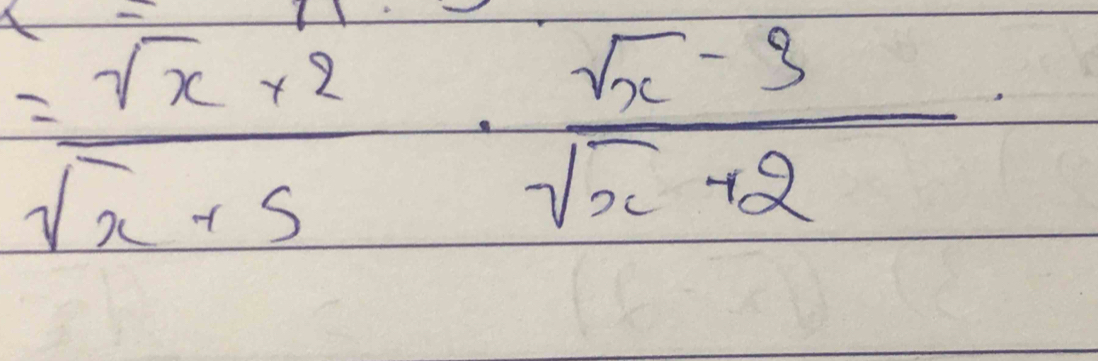 = (√x + 2)/(√x + 5) · (√x - 3)/(√x + 2) .